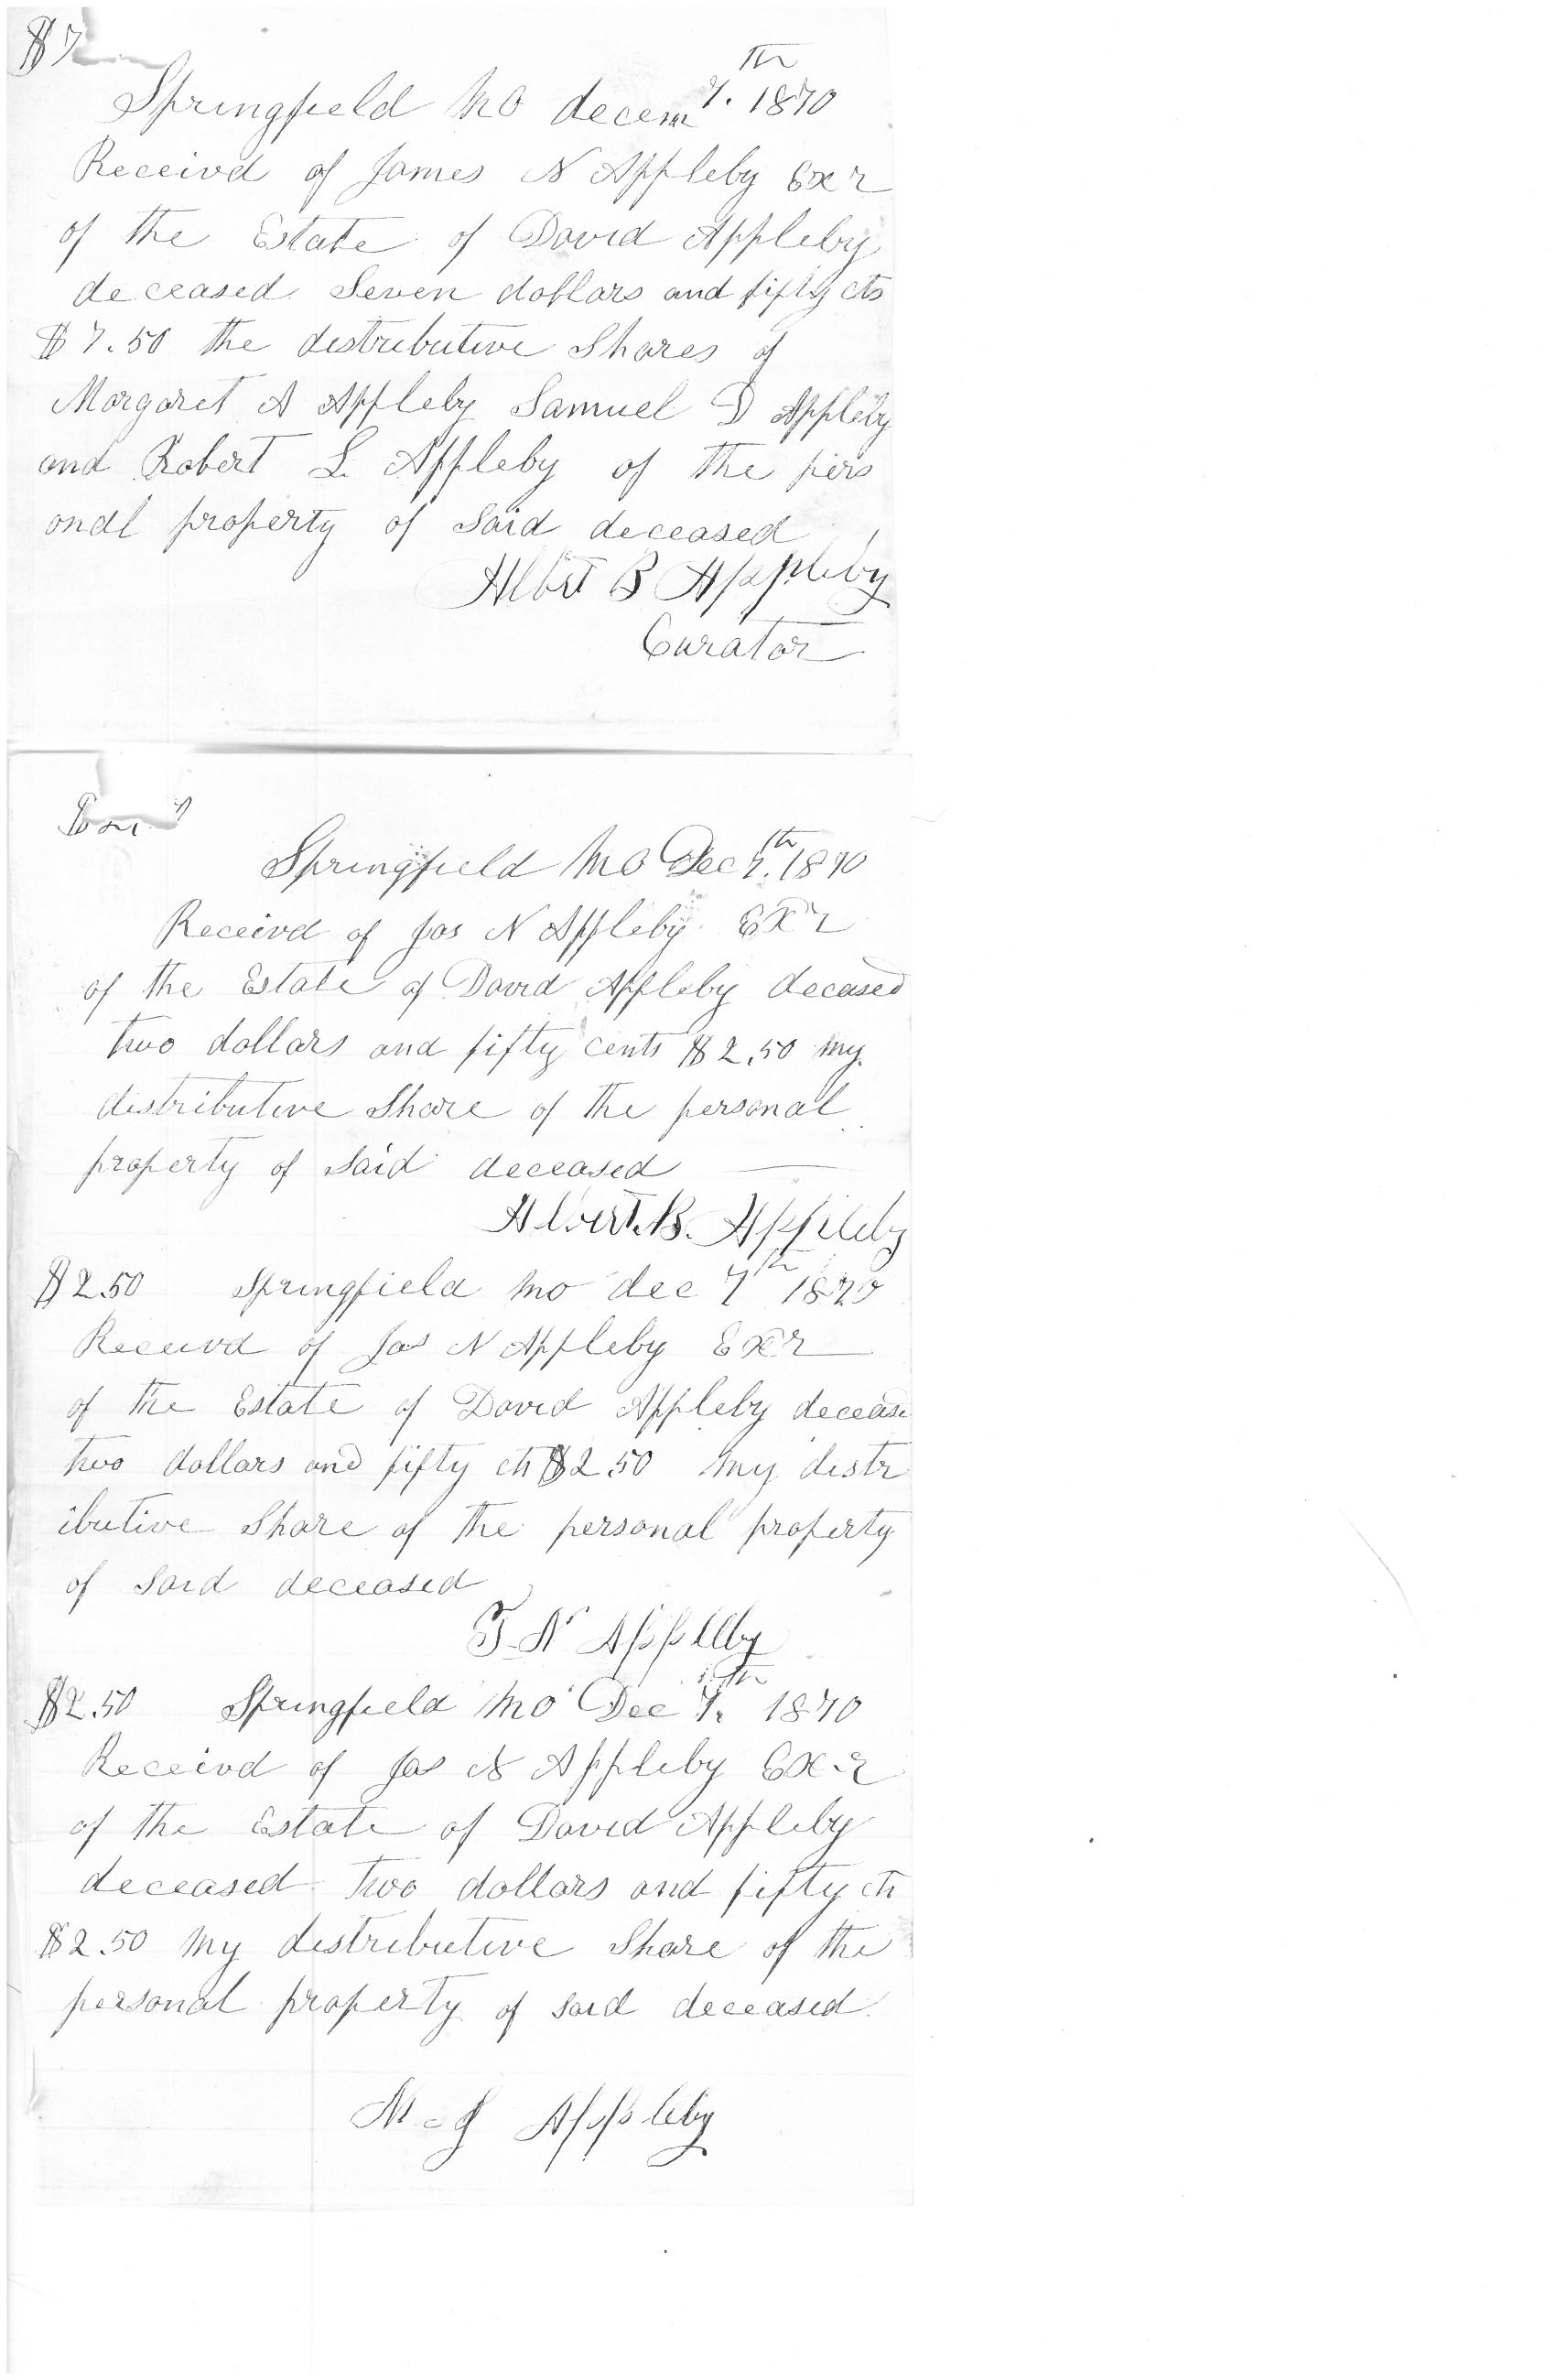 $7
Springfield Mo decem 7th. 1870
Receivd of James N Appleby Exr
of the Estate of David Appleby
deceased Seven dollars and fifty cts
$7.50 the distributive Shares of
Margaret A Appleby Samuel D Appleby
and Robert L. Appleby of the pers
onal property of Said deceased
Albert B Appleby
Curator
Springfield Mo Dec 7th. 1870
Receivd of Jas N Appleby Exr
of the Estate of David Appleby deceased
two dollars and fifty cents $2.50 my
distributive Share of the personal
property of Said deceased
Albert. B. Appleby
$2.50 Springfield Mo dec 7th 1870
Receivd of Jas N Appleby Exr
of the Estate of David Appleby decease
two dollars and fifty cts $2.50 my distr
ibutive Share of the personal property
of Said deceased
J. N Appleby
$2.50 Springfield Mo Dec 7th. 1870
Receivd of Jas N Appleby Exr
of the Estate of David Appleby
deceased two dollars and fifty cts
$2.50 my distributive Share of the
personal property of said deceased.
M-J Appleby